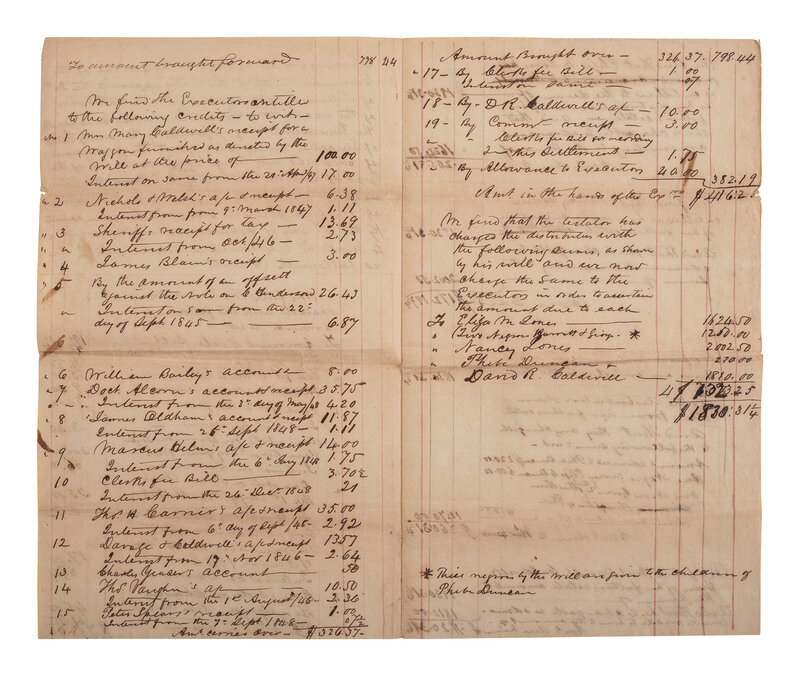 To amount brought forward 798 44
We find the Executors entitle
to the following credits – to wit –
No 1 Mrs Mary Caldwell's receipt for a
Waggon furnished as denoted by the
Will at the price of – 100.00
Interest on same from the 21st Apl /47 17.00
" 2 Nichols & Welch's a/c & receipt – 6.38
Interest from 9th March 1847 1.11
" 3 Sheriff's receipt for tax – 13.69
" " Interest from Oct /46 – 2.73
" 4 James Blain's receipt – 3.00
" 5 By the amount of an offsett
against the Note on C Henderson 26.43
" Interest on same from the 22d
day of Sept 1845 – 6.87
" 6 William Dailey's account 8.00
" 7 Doct Alcorn's account & receipt 35.75
" – " Interest from the 3d day of May /48 4.20
" 8 James Oldham's account & receipt 11.87
Interest from 26th Sept 1848 – 1.11
" 9 Marcus Helm's a/c & receipt 14.00
Interest from the 6th Jany 1848 1.75
10 Clerks fee Bill – 3.70½
Interest from the 26th Decr 1848 21
11 Thos K Carrier's a/c & receipt 35.00
Interest from 6th day of Sept /48 – 2.92
12 Savage & Caldwell's a/c & receipt 1357
Interest from 17th Nov 1846 – 2.64
13 Charles account – 50
14 Thos Vaughn's a/c – 10.50
Interest from the 1st August /46 – 2.36
15 Peter Spears's receipt – 1.00
Interest from the 7th Sept 1848 –
Amt carried over – $326.37 –
Amount Brought over – 326.37. 798.44
" 17 – By Clerks fee Bill – 1.00
Interest on same – 07
18 – By D. R. Caldwell's a/c – 10.00
19 – By Commrs receipt 3.00
" – Clerks fee Bill for recording
In this Settlement – 1.75
" 2 – By Allowance to Executors 40.00
382.19
Amt in the hands of the Exrs $416.25
We find that the testator has
charged the distributes with
the following sums, as shown
by his will and we now
charge the same to the
Executors in order to ascertain
the amount due to each
To Eliza M Jones 1624.50
" Two Negroes Garrett & * 1250.00
" Nancy Jones – 2002.50
" Phebe Duncan 220.00
" David R. Caldwell – 1810.00
$1830.31¼
* These negroes by the Will are given to the children of
Phebe Duncan